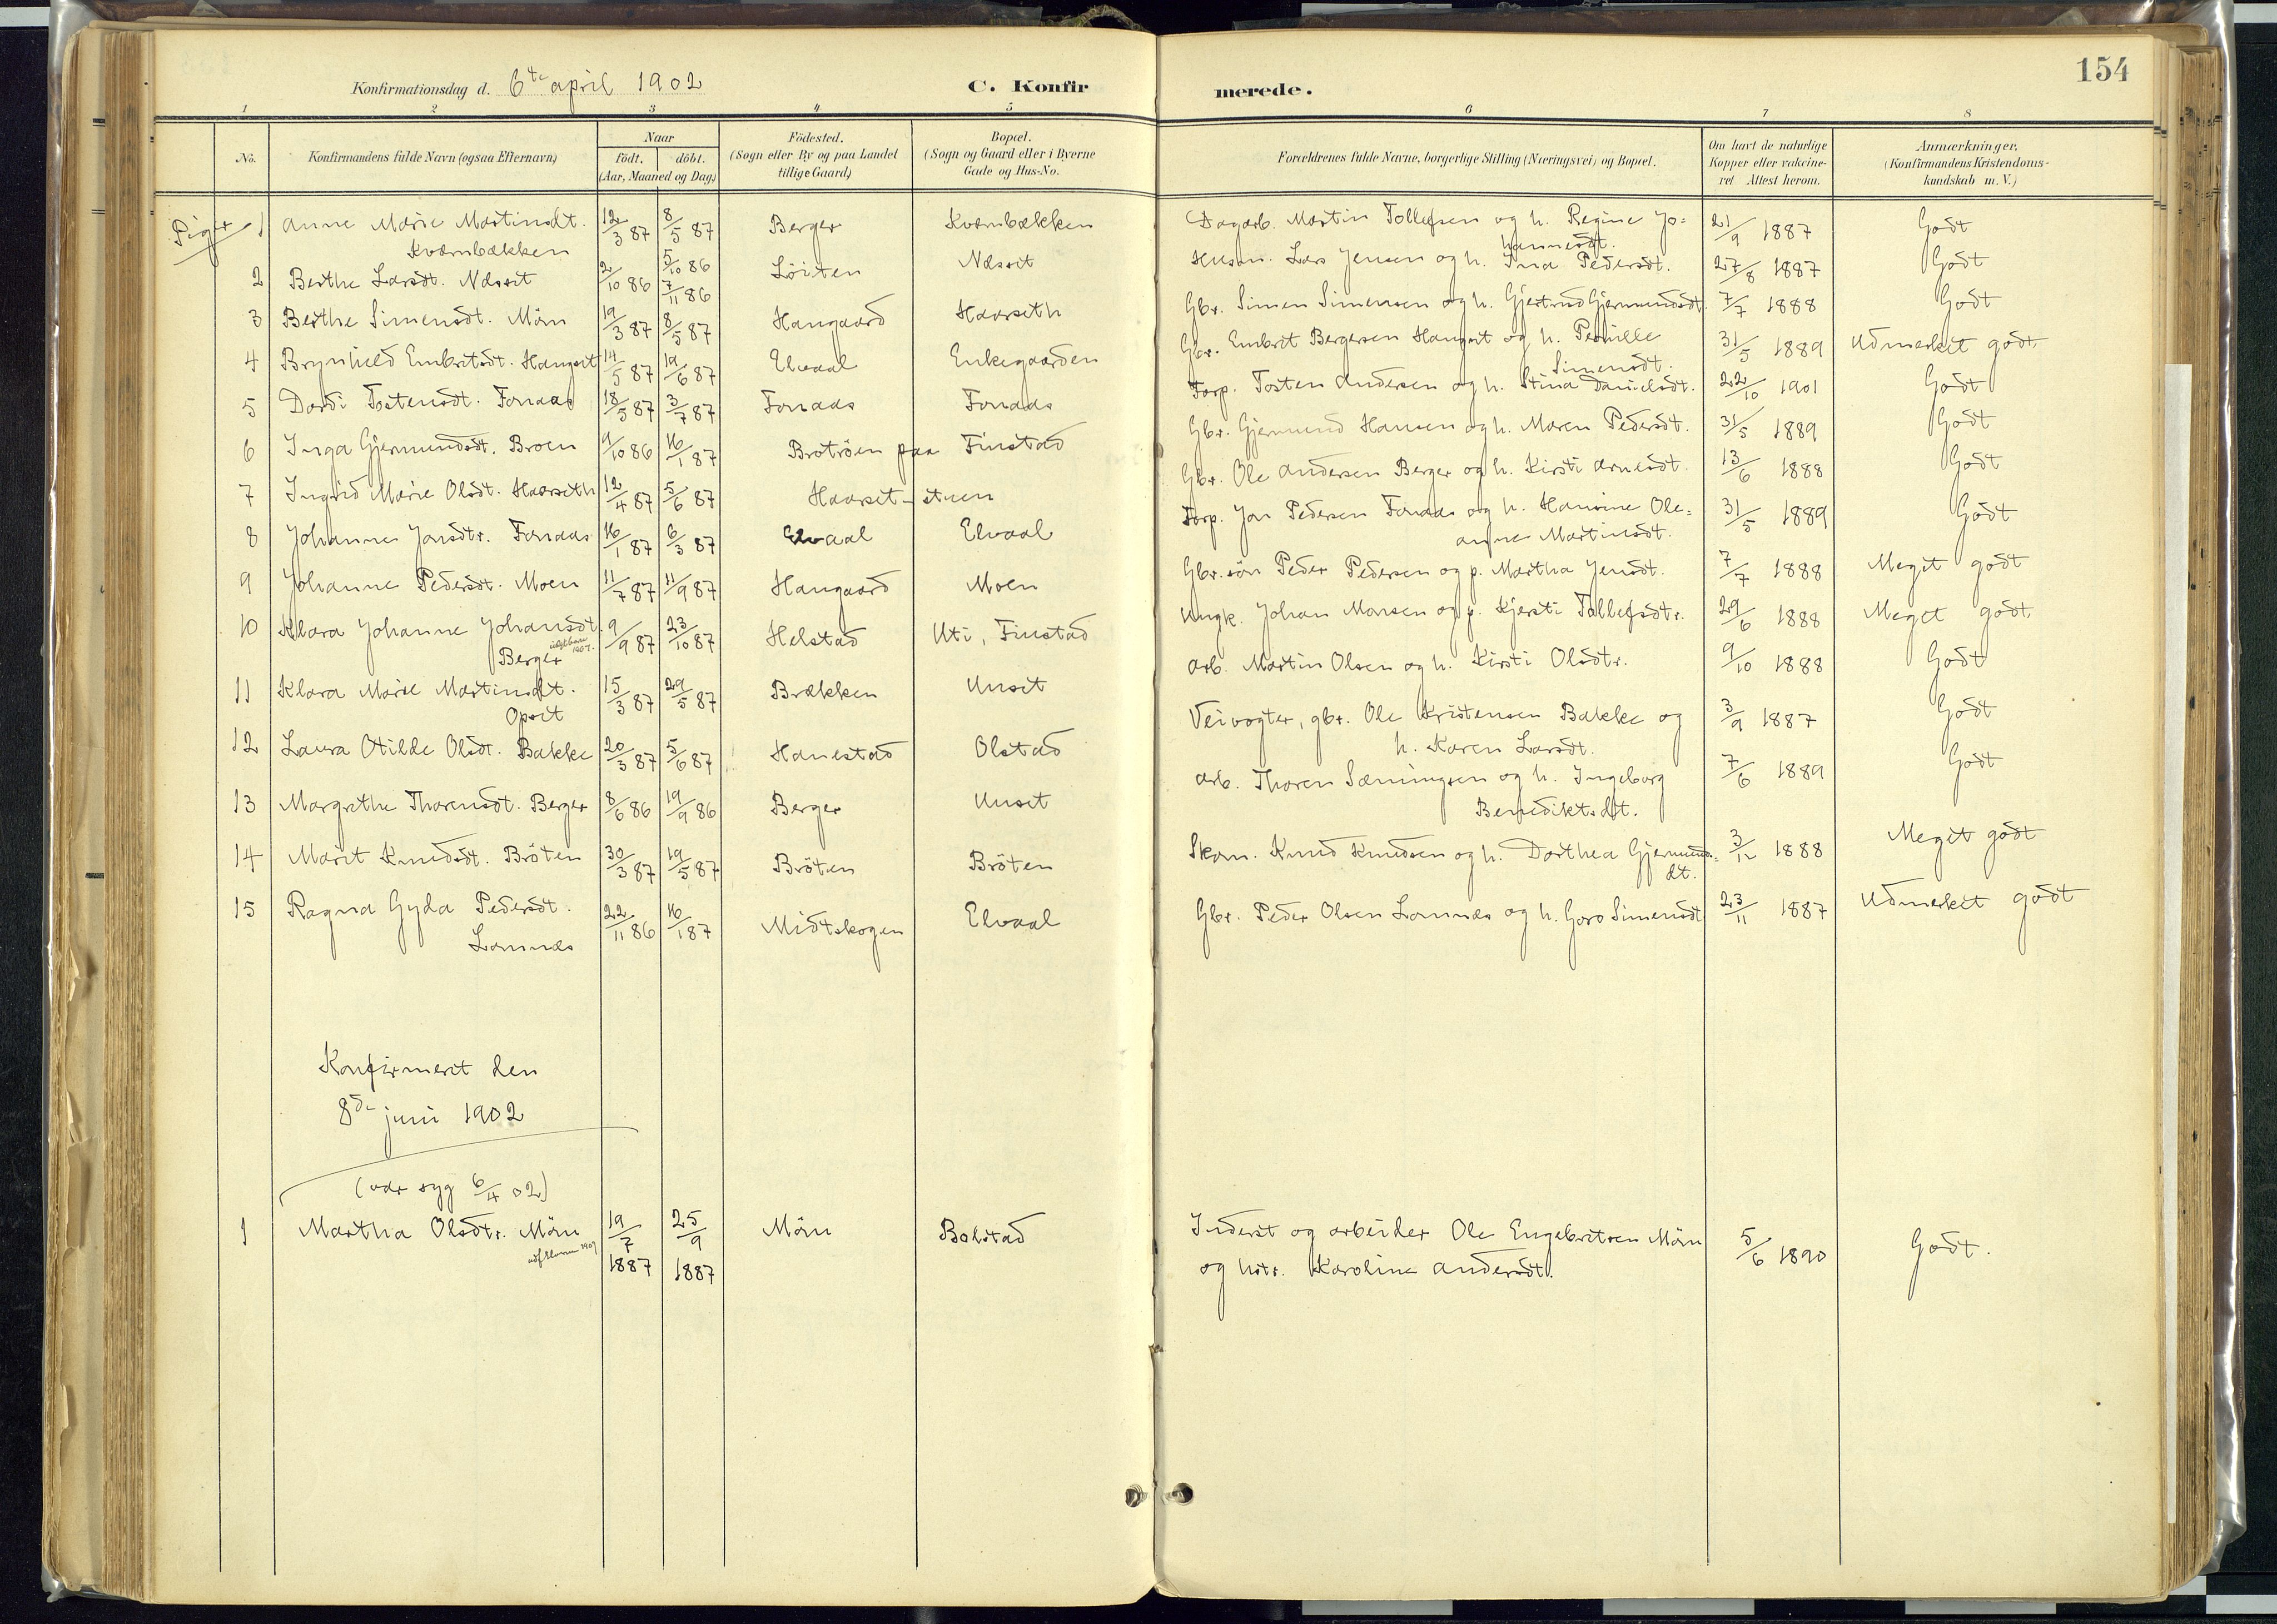 154
Konfirmationsdag d. 6te april 1902 C. Konfirmerede.
1 2 3 4 5 6 7 8
No. Konfirmandens fulde Navn (ogsaa Efternavn) Naar födt. döbt. (Aar, Maaned og Dag.) Födested. (Sogn eller By og paa Landet tillige Gaard) Bopæl. (Sogn og Gaard eller i Byerne Gade og Hus-No. Forældrenes fulde Navne, borgerlige Stilling (Næringsvei) og Bopæl. Om havt de naturlige Kopper eller vakcineret Attest herom. Anmærkninger, (Konfirmandens Kristendomskundskab m. V.)
Piger
1 Anne Marie Martinsdt. Kværnbækken 12/3 87 8/5 87 Berger Kværnbækken Dagarb. Martin Tollefsen og h. Regine Johannesdt. 21/9 1887 Godt
2 Berthe Larsdt. Næsset 2/10 86 5/10 86 7/11 86 Löiten Næsset Husm. Lars Jensen og h. Ina Pedersdt. 27/8 1887 Godt
3 Berthe Simensdt. Möru 19/3 87 8/5 87 Haugaard Haarseth Gbr. Simen Simensen og h. Gjertrud Gjermundsdt. 7/7 1888 Godt
4 Brynhild Embretsdt. Haugset 14/5 87 19/6 87 Elvaal Enkegaarden Gbr. Embret Bergersen Haugset og h. Pernille Simensdt. 31/5 1889 Udmerket godt
5 Dordi Tostensdt. Foraas 18/5 87 3/7 87 Foraas Foraas Torp. Tosten Andersen og h. Stina Danielsdt. 22/10 1901 Godt
6 Inga Gjermundsdt. Broen 9/10 86 16/1 87 Brotröen paa Finstad Gbr. Gjermund Hansen og h. Maren Pedersdt. 31/5 1889 Godt
7 Ingrid Marie Olsdt. Haarseth 12/4 87 5/6 87 Haarset-stuen Gbr. Ole Andersen Berger og h. Kirsti Arnesdt. 13/6 1888 Godt
8 Johanne Jonsdtr. Foraas 16/1 87 6/3 87 Elvaal Elvaal Torp. Jon Pedersen Foraas og h. Hansine Oleanne Martinsdt. 31/5 1889 Godt
9 Johanne Pedersdt. Moen 11/7 87 11/9 87 Haugaard Moen Gbr. sön Peder Pedersen og p. Martha Jensdt. 7/7 1888 Meget godt
10 Klara Johanne Johansdt. Berger 9/9 87 23/10 87 Helstad Uti, Finstad Ungk. Johan Monsen og p. Kjersti Tollefsdtr. 29/6 1888 Meget godt
11 Klara Marie Martinsdt. Opset 15/3 87 29/5 87 Brækken Unset Arb. Martin Olsen og h. Kirsti Olsdtr. 9/10 1888 Godt
12 Laura Otilde Olsdt. Bakke 20/3 87 5/6 87 Hanestad Olstad Veivogter, gbr. Ole Kristensen Bakke og h. Karen Larsdt. 3/9 1887 Godt
13 Margrethe Thorensdt. Berger 8/6 86 19/9 86 Berger Unset Arb. Thoren Sæmingsen og h. Ingeborg Benediktsdt. 7/6 1889 Godt
14 Marit Knudsdt. Bröten 30/3 87 19/5 87 Bröten Bröten Skom. Knud Knudsen og h. Dorthea Gjermundsdt. 3/12 1888 Meget godt
15 Ragna Gyda Pedersdt. Lomnes 22/11 86 16/1 87 Midtskogen Elvaal Gbr. Peder Olsen Lomnes og h. Goro Simensdt 23/11 1887 Udmerket godt
Konfirmert den
8de juni 1902
(var syg 6/4 02)
1 Martha Olsdtr. Möru 19/7 1887 25/9 1887 Möru Bolstad Inderst og arbeider Ole Engebretsen Möru og hstr. Karoline Andersdt. 5/6 1890 Godt.